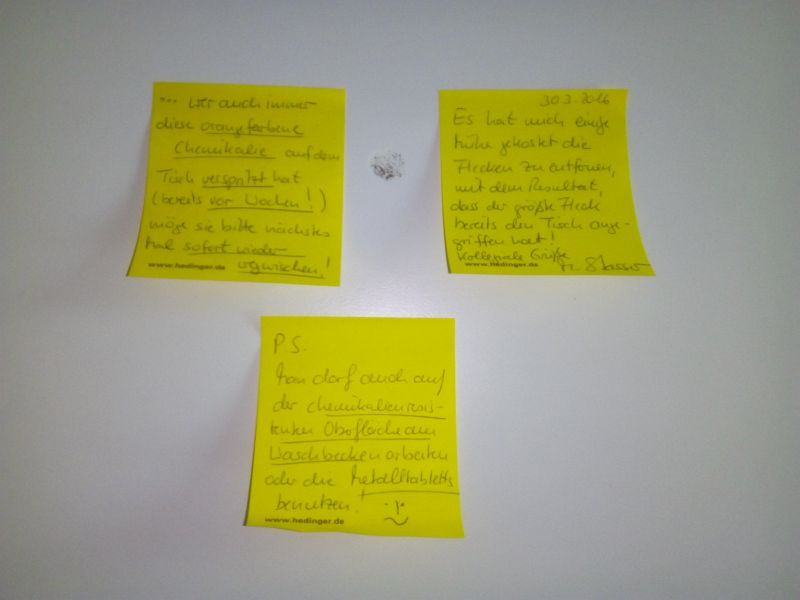 ... wer auch immer
diese orangefarbene
Chemikalie auf dem
Tisch verspritzt hat
(bereits vor Wochen!)
möge sie bitte nächstes
Mal sofort wieder
wegwischen!
www.hedinger.de
30.3.2016
Es hat mich einige
Mühe gekostet die
Flecken zu entfernen,
mit dem Resultat,
dass der größte Fleck
bereits den Tisch ange-
griffen hat!
Kollegiale Grüße
www.hedinger.de
P.S.
Man darf auch auf
der chemikalienresis-
tenten Oberfläche am
Waschbecken arbeiten
oder die Metalltabletts
benutzen.
www.hedinger.de